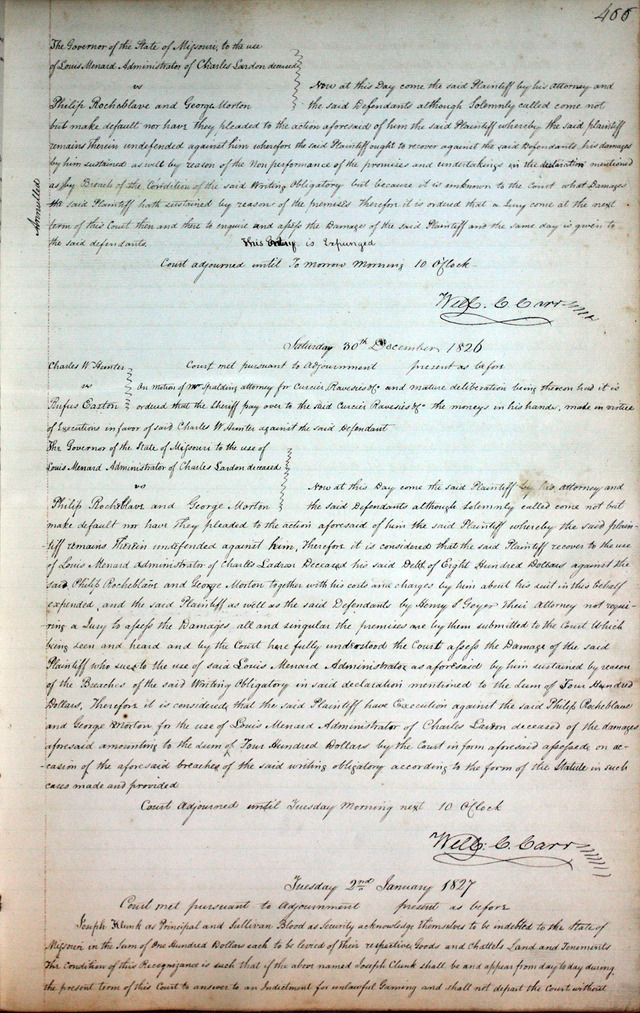 466
The Governor of the State of Missouri, to the use
of Louis Menard Administrator of Charles Lardon deceased
vs
Now at this Day come the said Plaintiff by his attorney and
Philip Rocheblave and George Morton the said Defendants although Solemnly called come not
but make default nor have they pleaded to the action aforesaid of him the said Plaintiff whereby the said plaintiff
remains therein undefended against him wherefore the said Plaintiff ought to recover against the said Defendants, his damages
by him sustained as well by reason of the Non performance of the promises and undertakings in the declaration mentioned
as by Breach of the Condition of the said Writing Obligatory but because it is unknown to the Court what Damages
the said Plaintiff hath sustained by reason of the premises Therefore it is ordered that a Jury come at the next
term of this Court then and there to enquire and assess the Damage of the said Plaintiff and the same day is given to
the said defendants. This Entry is Expunged
Annulled
Court adjourned until To morrow Morning 10 O'Clock
Will. C. Carr
Saturday 30th December 1826
Charles W Hunter Court met pursuant to Adjournment present as before
vs On motion of Mr Spalding attorney for Curcier, Ravesies &c and mature deliberation being thereon had it is
Rufus Easton ordered that the Sheriff pay over to the said Curcier Ravesies &c the moneys in his hands, made in virtue
of Executions in favor of said Charles W. Hunter against the said Defendant
The Governor of the State of Missouri to the use of
Louis Menard Administrator of Charles Lardon deceased
vs
Now at this Day come the said Plaintiff by his attorney and
Philip Rocheblave and George Morton the said Defendants although Solemnly called come not but
make default nor have they pleaded to the action aforesaid of him the said Plaintiff whereby the said plain-
-tiff remains Therein undefended against him, Therefore it is considered that the said Plaintiff recover to the use
of Louis Menard Administrator of Charles Ladron Deceased his said Debt of Eight Hundred Dollars against the
said Philip Rocheblave and George Morton together with his costs and charges by him about his suit in this behalf
expended, and the said Plaintiff as well as the said Defendants by Henry S Geyer their Attorney not requi-
ring a Jury to assess the Damages all and singular the premises are by them submitted to the Court Which
being seen and heard and by the Court here fully understood the Court assess the Damage of the said
Plaintiff who sues to the use of said Louis Menard Administrator as aforesaid by him sustained by reason
of the Breaches of the said Writing Obligatory in said declaration mentioned to the Sum of Four Hundred
Dollars, Therefore it is considered that the said Plaintiff have Execution against the said Philip Rocheblave
and George Morton for the use of Louis Menard Administrator of Charles Lardon deceased of the damages
aforesaid amounting to the sum of Four Hundred Dollars by the Court in form aforesaid assessed on oc-
-casion of the aforesaid breaches of the said writing obligatory according to the form of the Statute in such
cases made and provided
Court Adjourned until Tuesday Morning next 10 O'Clock
Will: C. Carr
Tuesday 2nd January 1827
Court met pursuant to Adjournment present as before
Joseph Klunk as Principal and Sullivan Blood as Security acknowledge themselves to be indebted to the State of
Missouri in the Sum of One Hundred Dollars each to be levied of their respective Goods and Chattels Land and Tenements
The Condition of this Recognizance is such that if the above named Joseph Clunk shall be and appear from day to day during
the present term of this Court to answer to an Indictment for unlawful Gaming and shall not depart the Court without